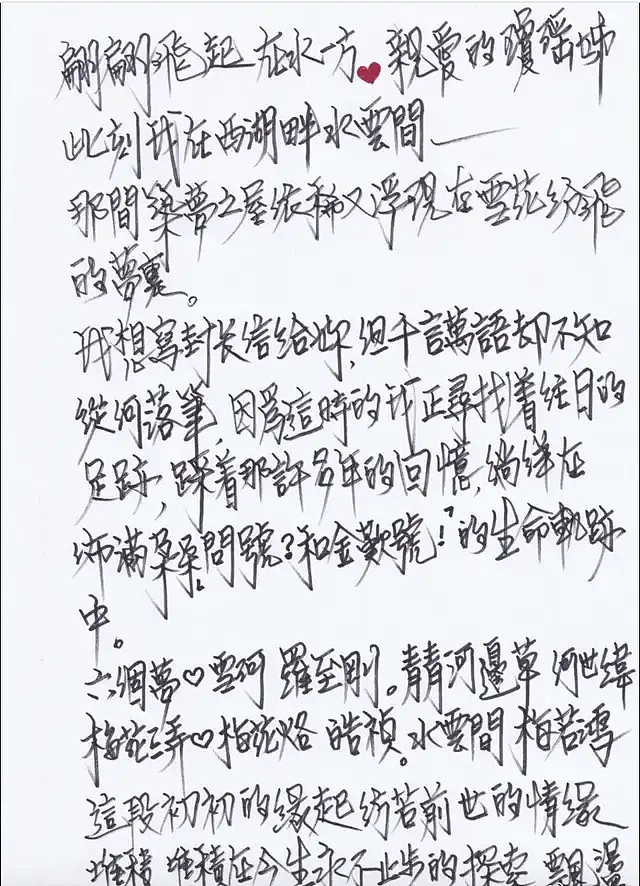 翩翩飛起 在水一方❤親愛的瓊瑤姊
此刻我在西湖畔水雲間——
那間築夢之屋依稀又浮現在雪花紛飛
的夢裏。
我想寫封长信給妳,但千言萬語却不知
從何落筆,因為這時的我正尋找着往日的
足跡,踩着那許多年的回憶,徜徉在
佈滿朵朵問號?和金歎號!的生命軌跡
中。
六個夢♡雪珂 羅至剛。青青河邊草 何世緯
梅花三弄♡梅花烙 皓禎。水雲間 梅若鴻
這段初初的緣起彷若前世的情緣
堆積 堆積在今生永不止步的探索 飄盪